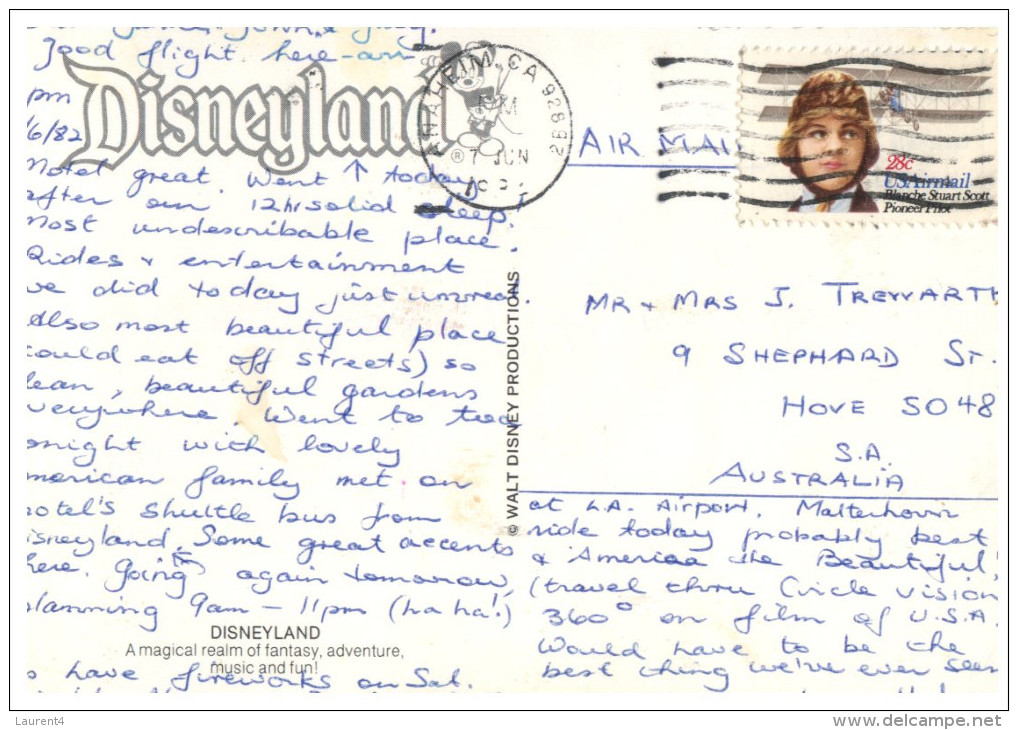 Good flight here-arr
pm
/6/82
Disneyland
®
ANAHEIM, CA 928
PM
7 JUN
AIR MAIL
28c
USAirmail
Blanche Stuart Scott
Pioneer Pilot
Motel great. Went ↑ today
after our 12hr solid sleep!
Most undescribable place.
Rides + entertainment
we did today just unreal.
Also most beautiful place
could eat off streets) so
lean, beautiful gardens
verywhere. Went to tea
onight with lovely
merican family met on
hotel's shuttle bus from
isneyland. Some great accents
here. Going again tomorrow,
planning 9am - 11pm (ha ha!)
DISNEYLAND
A magical realm of fantasy, adventure,
music and fun!
have fireworks on Sat.
© WALT DISNEY PRODUCTIONS
MR + MRS J. TREWARTH
9 SHEPHARD ST.
HOVE 5048
S.A.
AUSTRALIA
at L.A. Airport. Matterhorn
ride today probably best
& America the Beautiful!
(travel thru Circle vision
360° on film of U.S.A.
Would have to be the
best thing we've ever seen
Laurent4
delcampe.net